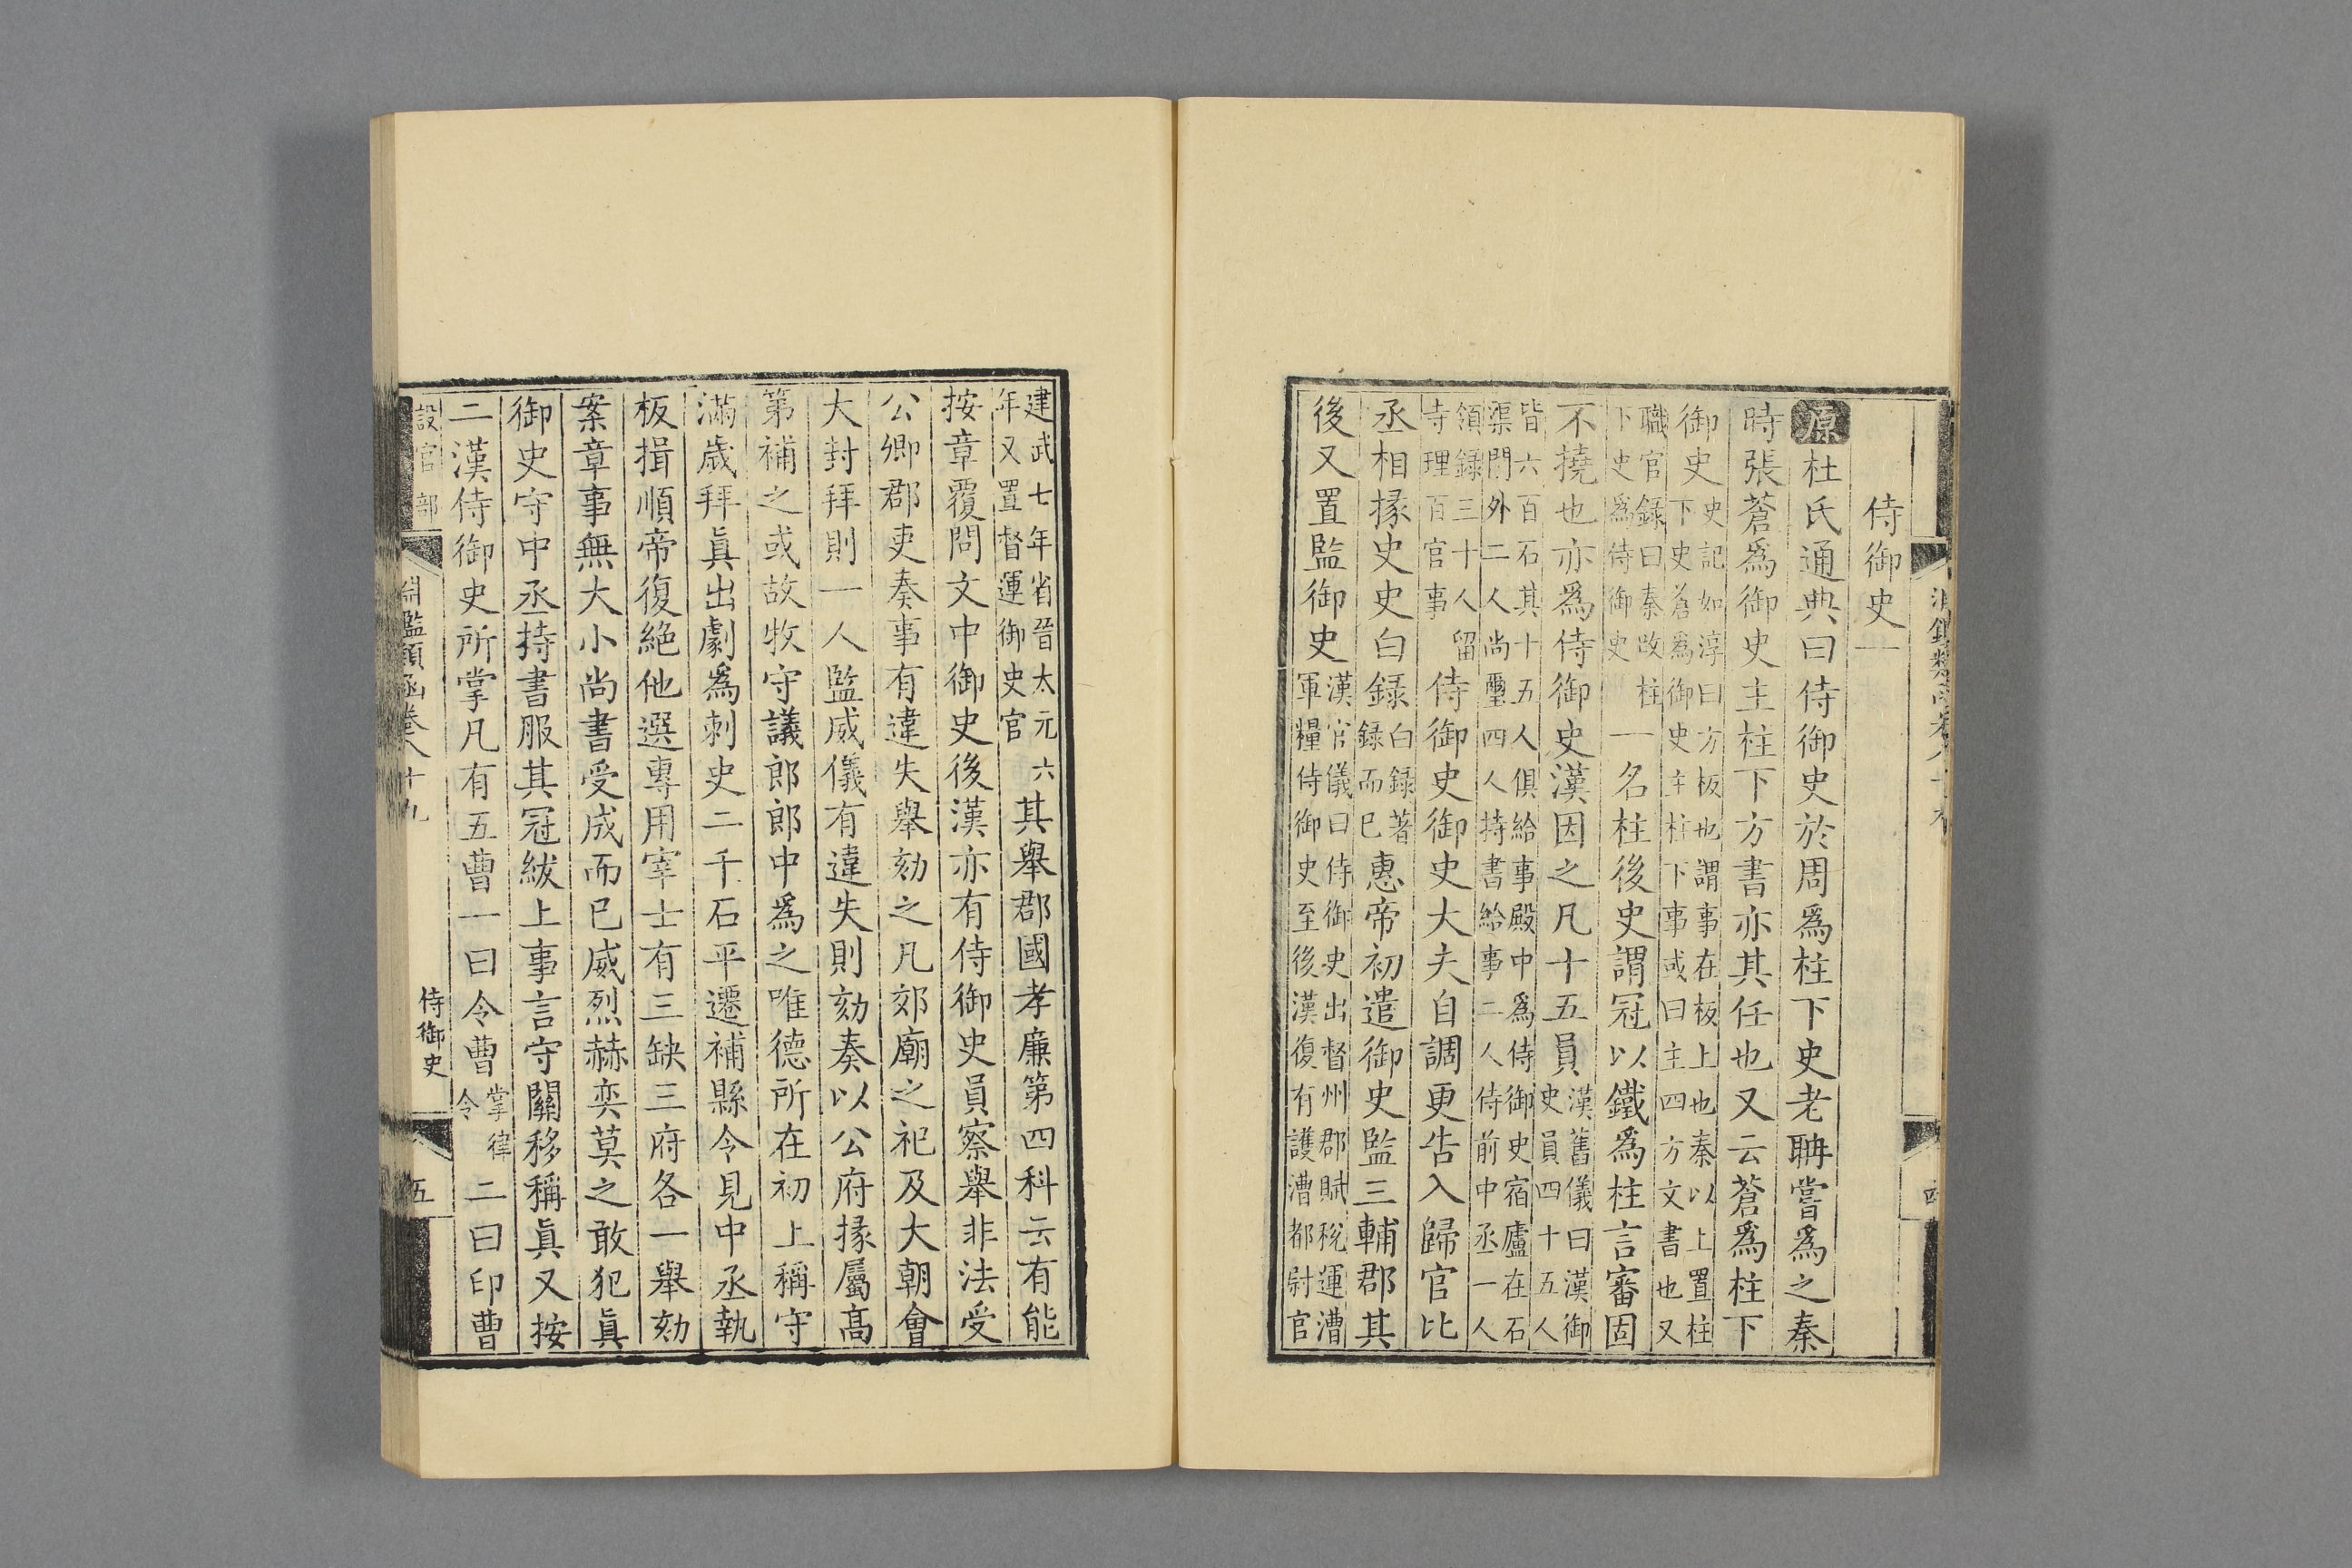 侍御史一
原杜氏通典曰侍御史於周爲柱下史老聃嘗爲之秦
時張蒼爲御史主柱下方書亦其任也又云蒼爲柱下
御史史記如淳曰方板也謂事在板上也秦以上置柱下史蒼爲御史主柱下事或曰主四方文書也又
職官錄曰秦改柱下史爲侍御史一名柱後史謂冠以鐵爲柱言審固
不撓也亦爲侍御史漢因之凡十五員漢舊儀曰漢御史員四十五人
皆六百石其十五人俱給事殿中爲侍御史宿廬在石渠門外二人尚璽四人持書給事二人侍前中丞一人
領錄三十人留寺理百官事侍御史御史大夫自調更告入歸官比
丞相掾史史白錄白錄著錄而已惠帝初遣御史監三輔郡其
後又置監御史漢官儀曰侍御史出督州郡賦稅運漕軍糧侍御史至後漢復有護漕都尉官
建武七年省晉太元六年又置督運御史官其舉郡國孝廉第四科云有能
按章覆問文中御史後漢亦有侍御史員察舉非法受
公卿郡吏奏事有違失舉劾之凡郊廟之祀及大朝會
大封拜則一人監威儀有違失則劾奏以公府掾屬高
第補之或故牧守議郎郎中爲之唯德所在初上稱守
滿歲拜眞出劇爲刺史二千石平遷補縣令見中丞執
板揖順帝復絕他選專用宰士有三缺三府各一舉劾
案章事無大小尚書受成而已威烈赫奕莫之敢犯眞
御史守中丞持書服其冠紱上事言守關移稱眞又按
二漢侍御史所掌凡有五曹一曰令曹掌律令二曰印曹
設官部 淵鑑類函卷八十九 侍御史 五